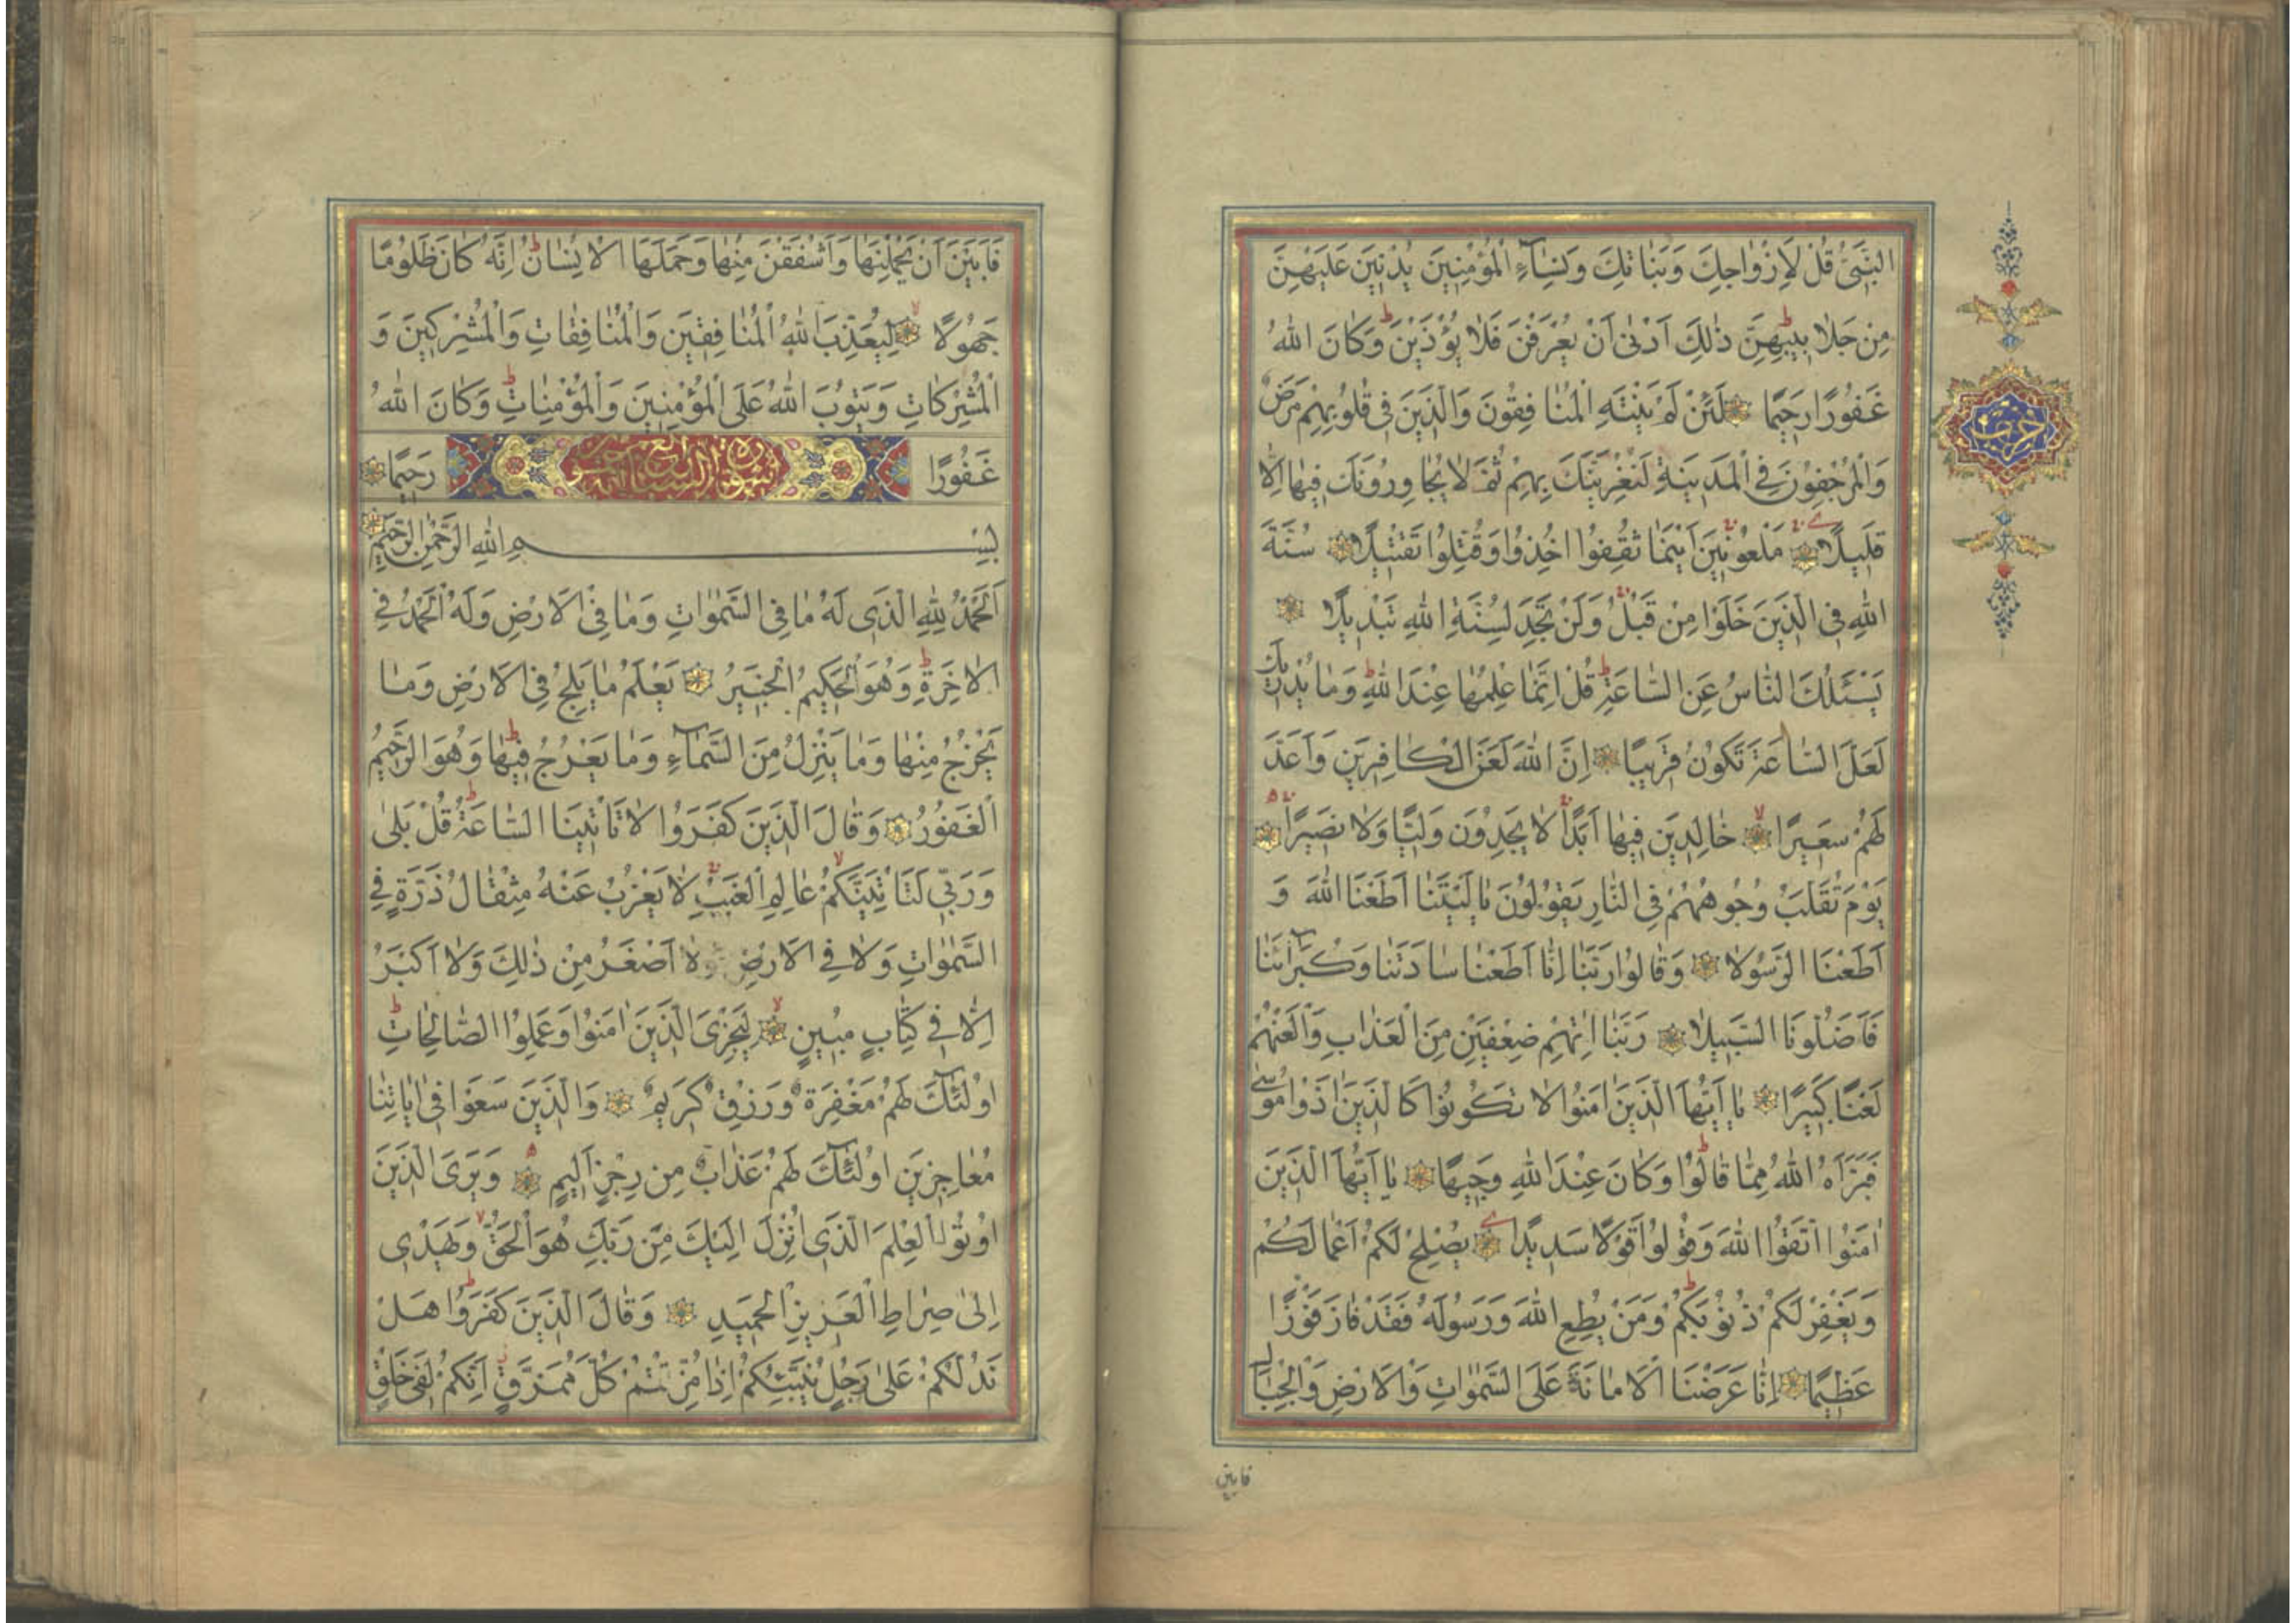 النَّبِيُّ قُلْ لِاَزْوَاجِكَ وَبَنَاتِكَ وَنِسَآءِ الْمُؤْمِنِينَ يُدْنِينَ عَلَيْهِنَّ
مِنْ جَلَابِيبِهِنَّ ذٰلِكَ اَدْنٰى اَنْ يُعْرَفْنَ فَلَا يُؤْذَيْنَ وَكَانَ اللهُ
غَفُورًا رَحِيمًا لَئِنْ لَمْ يَنْتَهِ الْمُنَافِقُونَ وَالَّذِينَ فِي قُلُوبِهِمْ مَرَضٌ
وَالْمُرْجِفُونَ فِي الْمَدِينَةِ لَنُغْرِيَنَّكَ بِهِمْ ثُمَّ لَا يُجَاوِرُونَكَ فِيهَا اِلَّا
قَلِيلًا مَلْعُونِينَ اَيْنَمَا ثُقِفُوا اُخِذُوا وَقُتِّلُوا تَقْتِيلًا سُنَّةَ
اللهِ فِي الَّذِينَ خَلَوْا مِنْ قَبْلُ وَلَنْ تَجِدَ لِسُنَّةِ اللهِ تَبْدِيلًا
يَسْئَلُكَ النَّاسُ عَنِ السَّاعَةِ قُلْ اِنَّمَا عِلْمُهَا عِنْدَ اللهِ وَمَا يُدْرِيكَ
لَعَلَّ السَّاعَةَ تَكُونُ قَرِيبًا اِنَّ اللهَ لَعَنَ الْكَافِرِينَ وَاَعَدَّ
لَهُمْ سَعِيرًا خَالِدِينَ فِيهَا اَبَدًا لَا يَجِدُونَ وَلِيًّا وَلَا نَصِيرًا
يَوْمَ تُقَلَّبُ وُجُوهُهُمْ فِي النَّارِ يَقُولُونَ يَا لَيْتَنَا اَطَعْنَا اللهَ وَ
اَطَعْنَا الرَّسُولَا وَقَالُوا رَبَّنَا اِنَّا اَطَعْنَا سَادَتَنَا وَكُبَرَآئَنَا
فَاَضَلُّونَا السَّبِيلَا رَبَّنَا اٰتِهِمْ ضِعْفَيْنِ مِنَ الْعَذَابِ وَالْعَنْهُمْ
لَعْنًا كَبِيرًا يَا اَيُّهَا الَّذِينَ اٰمَنُوا لَا تَكُونُوا كَالَّذِينَ اٰذَوْا مُوسٰى
فَبَرَّاَهُ اللهُ مِمَّا قَالُوا وَكَانَ عِنْدَ اللهِ وَجِيهًا يَا اَيُّهَا الَّذِينَ
اٰمَنُوا اتَّقُوا اللهَ وَقُولُوا قَوْلًا سَدِيدًا يُصْلِحْ لَكُمْ اَعْمَالَكُمْ
وَيَغْفِرْ لَكُمْ ذُنُوبَكُمْ وَمَنْ يُطِعِ اللهَ وَرَسُولَهُ فَقَدْ فَازَ فَوْزًا
عَظِيمًا اِنَّا عَرَضْنَا الْاَمَانَةَ عَلَى السَّمٰوَاتِ وَالْاَرْضِ وَالْجِبَالِ
فابين
حزب
فَاَبَيْنَ اَنْ يَحْمِلْنَهَا وَاَشْفَقْنَ مِنْهَا وَحَمَلَهَا الْاِنْسَانُ اِنَّهُ كَانَ ظَلُومًا
جَهُولًا لِيُعَذِّبَ اللهُ الْمُنَافِقِينَ وَالْمُنَافِقَاتِ وَالْمُشْرِكِينَ وَ
الْمُشْرِكَاتِ وَيَتُوبَ اللهُ عَلَى الْمُؤْمِنِينَ وَالْمُؤْمِنَاتِ وَكَانَ اللهُ
غَفُورًا رَحِيمًا
بِسْمِ اللهِ الرَّحْمٰنِ الرَّحِيمِ
اَلْحَمْدُ لِلهِ الَّذِي لَهُ مَا فِي السَّمٰوَاتِ وَمَا فِي الْاَرْضِ وَلَهُ الْحَمْدُ فِي
الْاٰخِرَةِ وَهُوَ الْحَكِيمُ الْخَبِيرُ يَعْلَمُ مَا يَلِجُ فِي الْاَرْضِ وَمَا
يَخْرُجُ مِنْهَا وَمَا يَنْزِلُ مِنَ السَّمَآءِ وَمَا يَعْرُجُ فِيهَا وَهُوَ الرَّحِيمُ
الْغَفُورُ وَقَالَ الَّذِينَ كَفَرُوا لَا تَاْتِينَا السَّاعَةُ قُلْ بَلٰى
وَرَبِّي لَتَاْتِيَنَّكُمْ عَالِمِ الْغَيْبِ لَا يَعْزُبُ عَنْهُ مِثْقَالُ ذَرَّةٍ فِي
السَّمٰوَاتِ وَلَا فِي الْاَرْضِ وَلَا اَصْغَرُ مِنْ ذٰلِكَ وَلَا اَكْبَرُ
اِلَّا فِي كِتَابٍ مُبِينٍ لِيَجْزِيَ الَّذِينَ اٰمَنُوا وَعَمِلُوا الصَّالِحَاتِ
اُولٰٓئِكَ لَهُمْ مَغْفِرَةٌ وَرِزْقٌ كَرِيمٌ وَالَّذِينَ سَعَوْا فِي اٰيَاتِنَا
مُعَاجِزِينَ اُولٰٓئِكَ لَهُمْ عَذَابٌ مِنْ رِجْزٍ اَلِيمٍ وَيَرَى الَّذِينَ
اُوتُوا الْعِلْمَ الَّذِي اُنْزِلَ اِلَيْكَ مِنْ رَبِّكَ هُوَ الْحَقَّ وَيَهْدِي
اِلٰى صِرَاطِ الْعَزِيزِ الْحَمِيدِ وَقَالَ الَّذِينَ كَفَرُوا هَلْ
نَدُلُّكُمْ عَلٰى رَجُلٍ يُنَبِّئُكُمْ اِذَا مُزِّقْتُمْ كُلَّ مُمَزَّقٍ اِنَّكُمْ لَفِي خَلْقٍ